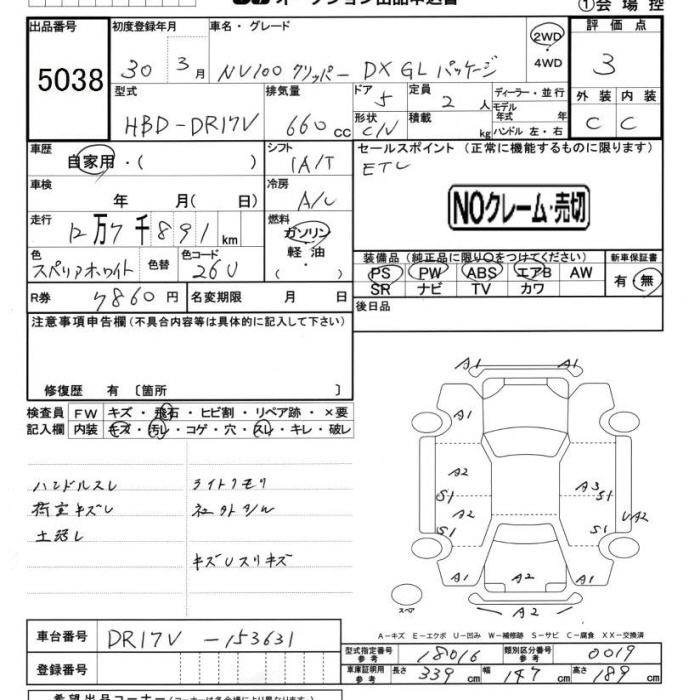 ①会場控
出品番号
5038
初度登録年月
30年3月
車名・グレード
NV100クリッパー DX GLパッケージ
2WD
・
4WD
評価点
3
型式
HBD-DR17V
排気量
660cc
ドア
5
定員
2人
形状
C/V
積載
kg
ディーラー・並行
モデル年式 年
ハンドル 左・右
外装
C
内装
C
車歴
自家用・( )
シフト
IA/T
セールスポイント (正常に機能するものに限ります)
ETC
NOクレーム・売切
車検
年 月( 日)
冷房
A/C
走行
12万7千891km
燃料
ガソリン
軽油
( ・ )
色
スペリアホワイト
色替
色コード
26U
装備品 (純正品に限り○をつけてください)
PS PW ABS エアB AW
SR ナビ TV カワ
新車保証書
有・無
R券
7860円
名変期限 月 日
後日品
注意事項申告欄(不具合内容等は具体的に記入して下さい)
修復歴 有 〔箇所 〕
検査員
記入欄
FW キズ・飛石・ヒビ割・リペア跡・×要
内装 キズ・汚レ・コゲ・穴・スレ・キレ・破レ
ハンドルスレ
ライトクモリ
荷室キズレ
土汚レ
キズUスリキズ
A1 A1
A1
A2
S1
A3
S1
A2
S1
S1
UA2
A1
A2
A1
A2
スペア
A-キズ E-エクボ U-凹み W-補修跡 S-サビ C-腐食 XX-交換済
車台番号
DR17V-153631
登録番号
型式指定番号
参考
18016
類別区分番号
参考
0019
車庫証明用
参考
長さ 339cm 幅 147cm 高さ 189cm